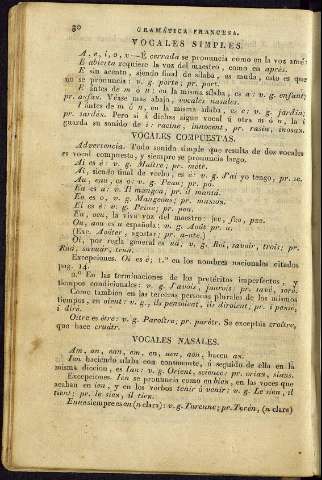 30 GRAMÁTICA FRANCESA.
VOCALES SIMPLES.
A, e, i, o, u.—É cerrada se pronuncia como en la voz amé:
E abierta requiere la voz del maestro, como en après.
E sin acento, siendo final de sílaba, es muda, esto es que
no se pronuncia: v. g. porte; pr. port.
E ántes de m ó n, en la misma sílaba, es a: v. g. enfant;
pr. anfan. Véase mas abajo, vocales nasales.
I ántes de m ó n, en la misma sílaba, es e: v. g. jardin;
pr. jardén. Pero si á dichas sigue vocal ú otra m ó n, la i
guarda su sonido de i: racine, innocent, pr. rasin, inosan.
VOCALES COMPUESTAS.
Advertencia. Todo sonido simple que resulta de dos vocales
es vocal compuesta, y siempre se pronuncia largo.
Ai es è: v. g. Maître, pr. metr.
Ai, siendo final de verbo, es e: v. g. J'ai yo tengo, pr. je.
Au, eau, es o: v. g. Peau; pr. po.
Ea es a: v. g. Il mangea, pr. il manja.
Eo es o, v. g. Mangeons; pr. manxon.
Ei es è: v. g. Peine; pr. pen.
Eu, oeu, la viva voz del maestro: jeu, feu, yeux.
Ou, aou es u española: v. g. Août pr. u.
(Ex. Aoûter, agostar; pr. a-uté.)
Oi, por regla general es uá, v. g. Roi, savoir, trois; pr.
Ruá, savuár, truá.
Excepciones. Oi es è; 1.º en los nombres nacionales citados
pag. 14.
2.º En las terminaciones de los pretéritos imperfectos y
tiempos condicionales: v. g. J'avois, j'aurois; pr. javè, jorè.
Como tambien en las terceras personas plurales de los mismos
tiempos, en oient: v. g., ils pensoient, ils diroient, pr. i pansè,
i dirè.
Oitre es ètre: v. g. Paroître; pr. parètr. Se exceptúa croître,
que hace cruâtr.
VOCALES NASALES.
Am, an, ean, em, en, uen, aon, hacen an.
Ien haciendo sílaba con consonante, ó seguido de ella en la
misma diccion, es ian: v. g. Orient, science: pr. orian, sians.
Excepciones. Ien se pronuncia como en bien, en las voces que
acaban en ien, y en los verbos tenir ó venir: v. g. Le sien, il
tient; pr. le sien, il tien.
En ue siempre es on (n clara): v. g. Turenne; pr. Turèn, (n clara)